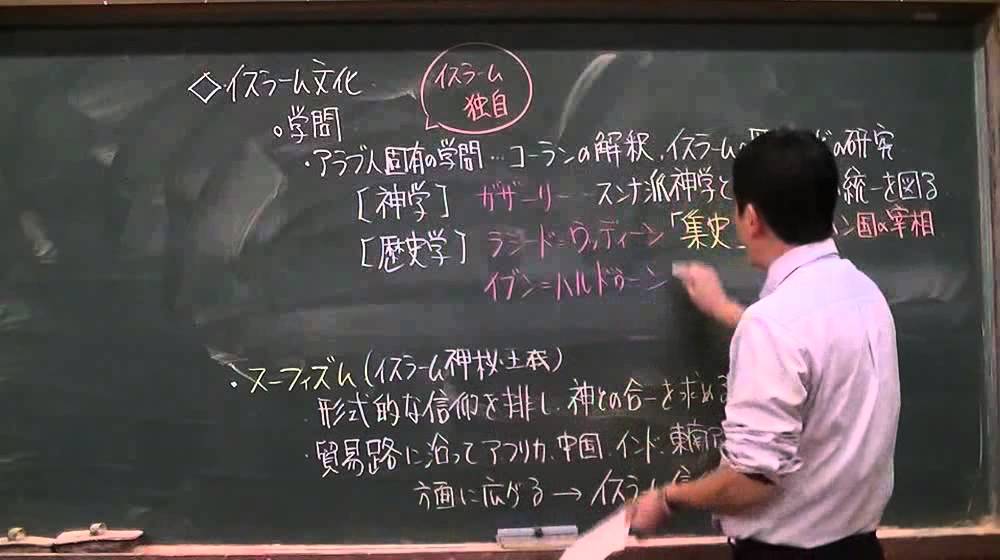 ◇イスラーム文化
イスラーム
独自
○学問
・アラブ人固有の学問…コーランの解釈、イスラームの の研究
[神学] ガザーリー… スンナ派神学と 統一を図る
[歴史学] ラシード=ウッディーン「集史」 ン国の宰相
イブン=ハルドゥーン
・スーフィズム(イスラーム神秘主義)
・形式的な信仰を排し、神との合一を求める
・貿易路に沿ってアフリカ、中国、インド、東南ア
方面に広がる→イスラム